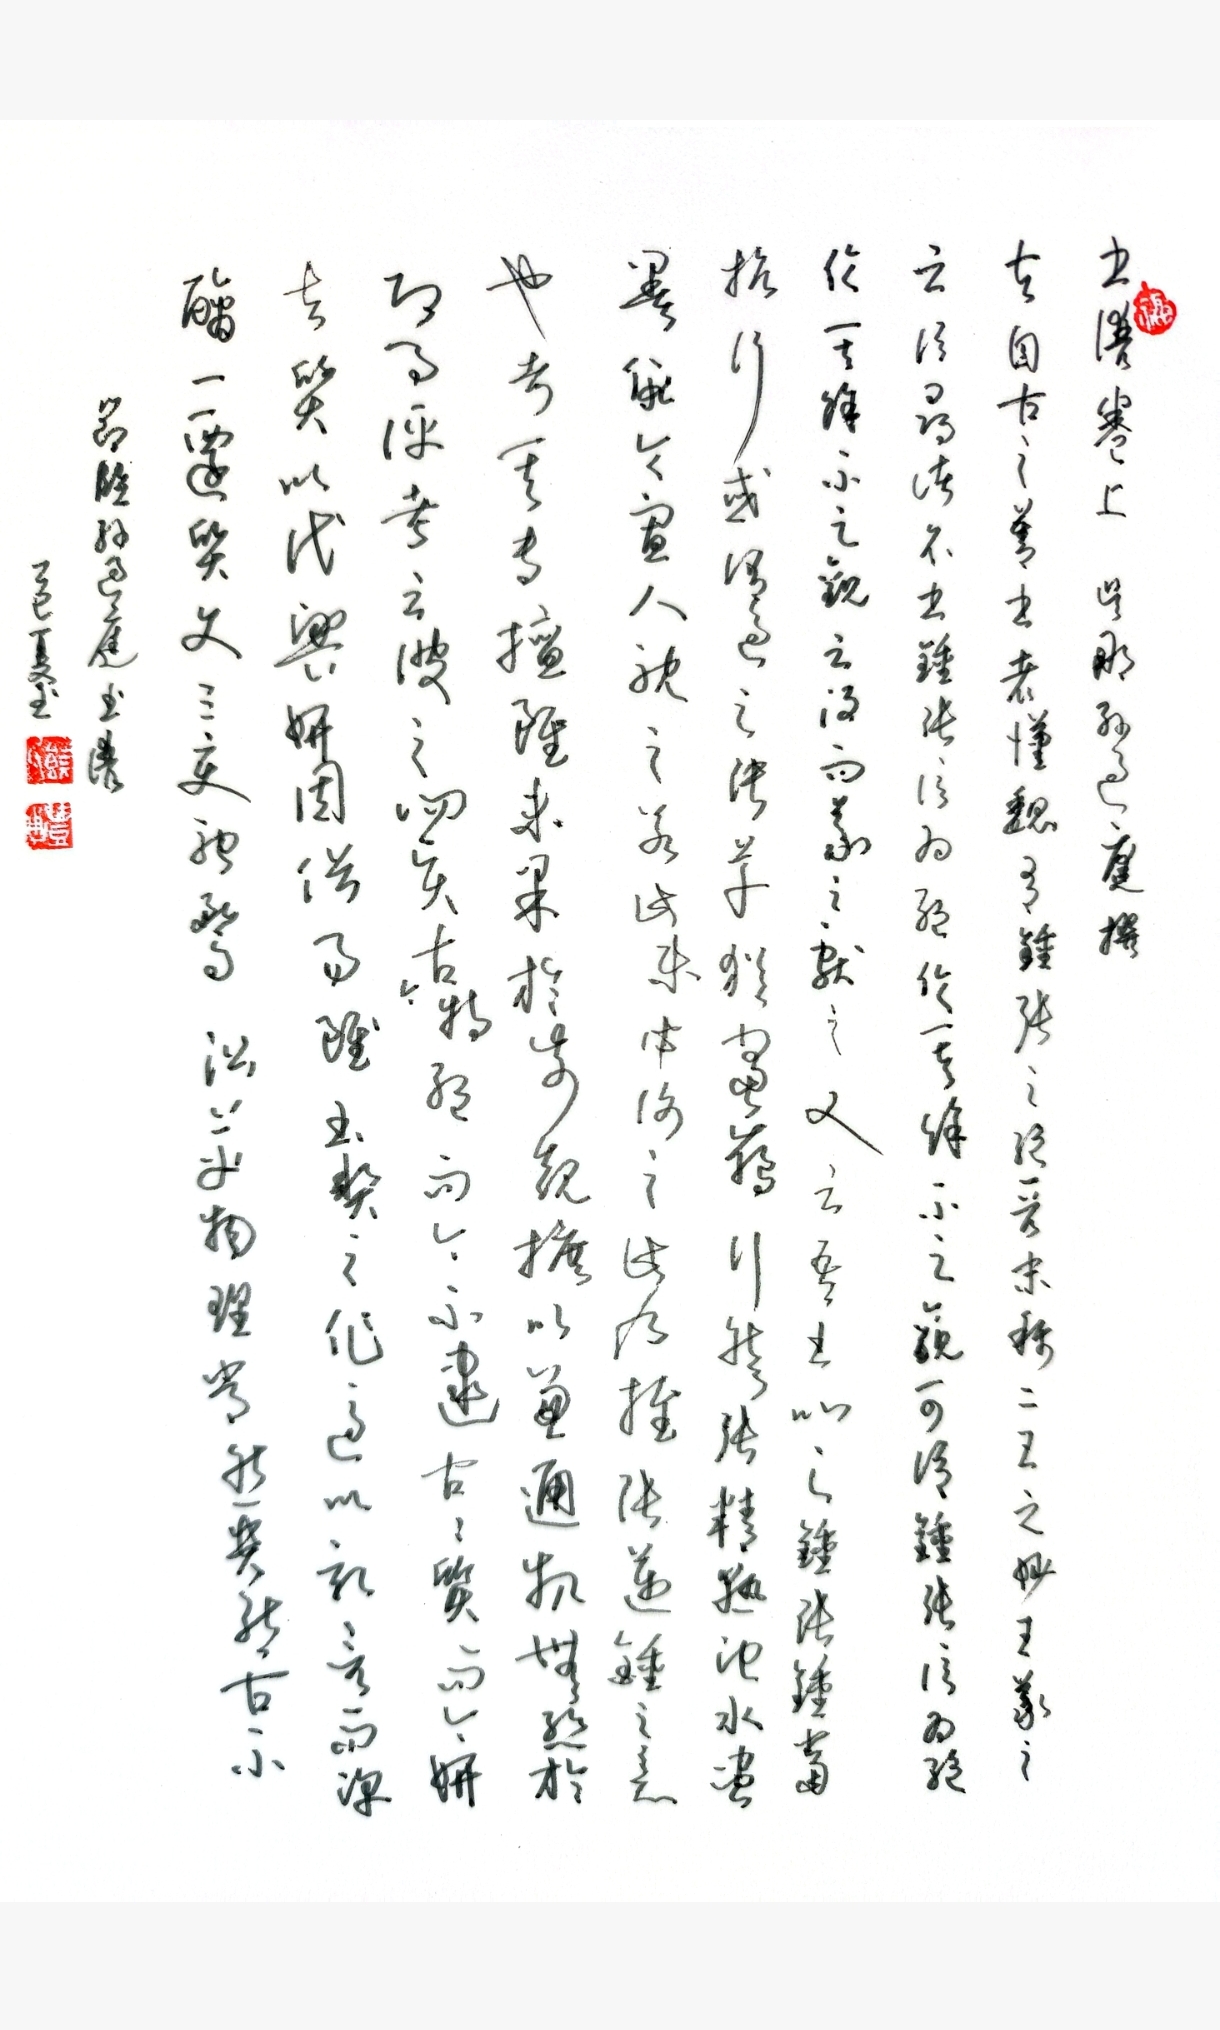 書譜卷上 吳郡孫過庭撰
夫自古之善書者漢魏有鍾張之絕晉末稱二王之妙王羲之
云頃尋諸名書鍾張信為絕倫其餘不足觀可謂鍾張信為絕
倫其餘不足觀云沒而羲之獻之又云吾書比之鍾張鍾當
抗行或謂過之張草猶當鴈行然張精熟池水盡
墨假令寡人耽之若此未必謝之此乃推張邁鍾之意
也考其專擅雖未果於前規摭以兼通故無慙於
即事評者云彼之四賢古今特絕而今不逮古古質而今妍
夫質以代興妍因俗易雖書契之作適以記言而淳
醨一遷質文三變馳騖沿革物理常然貴能古不
節臨孫過庭書譜
乙巳夏書